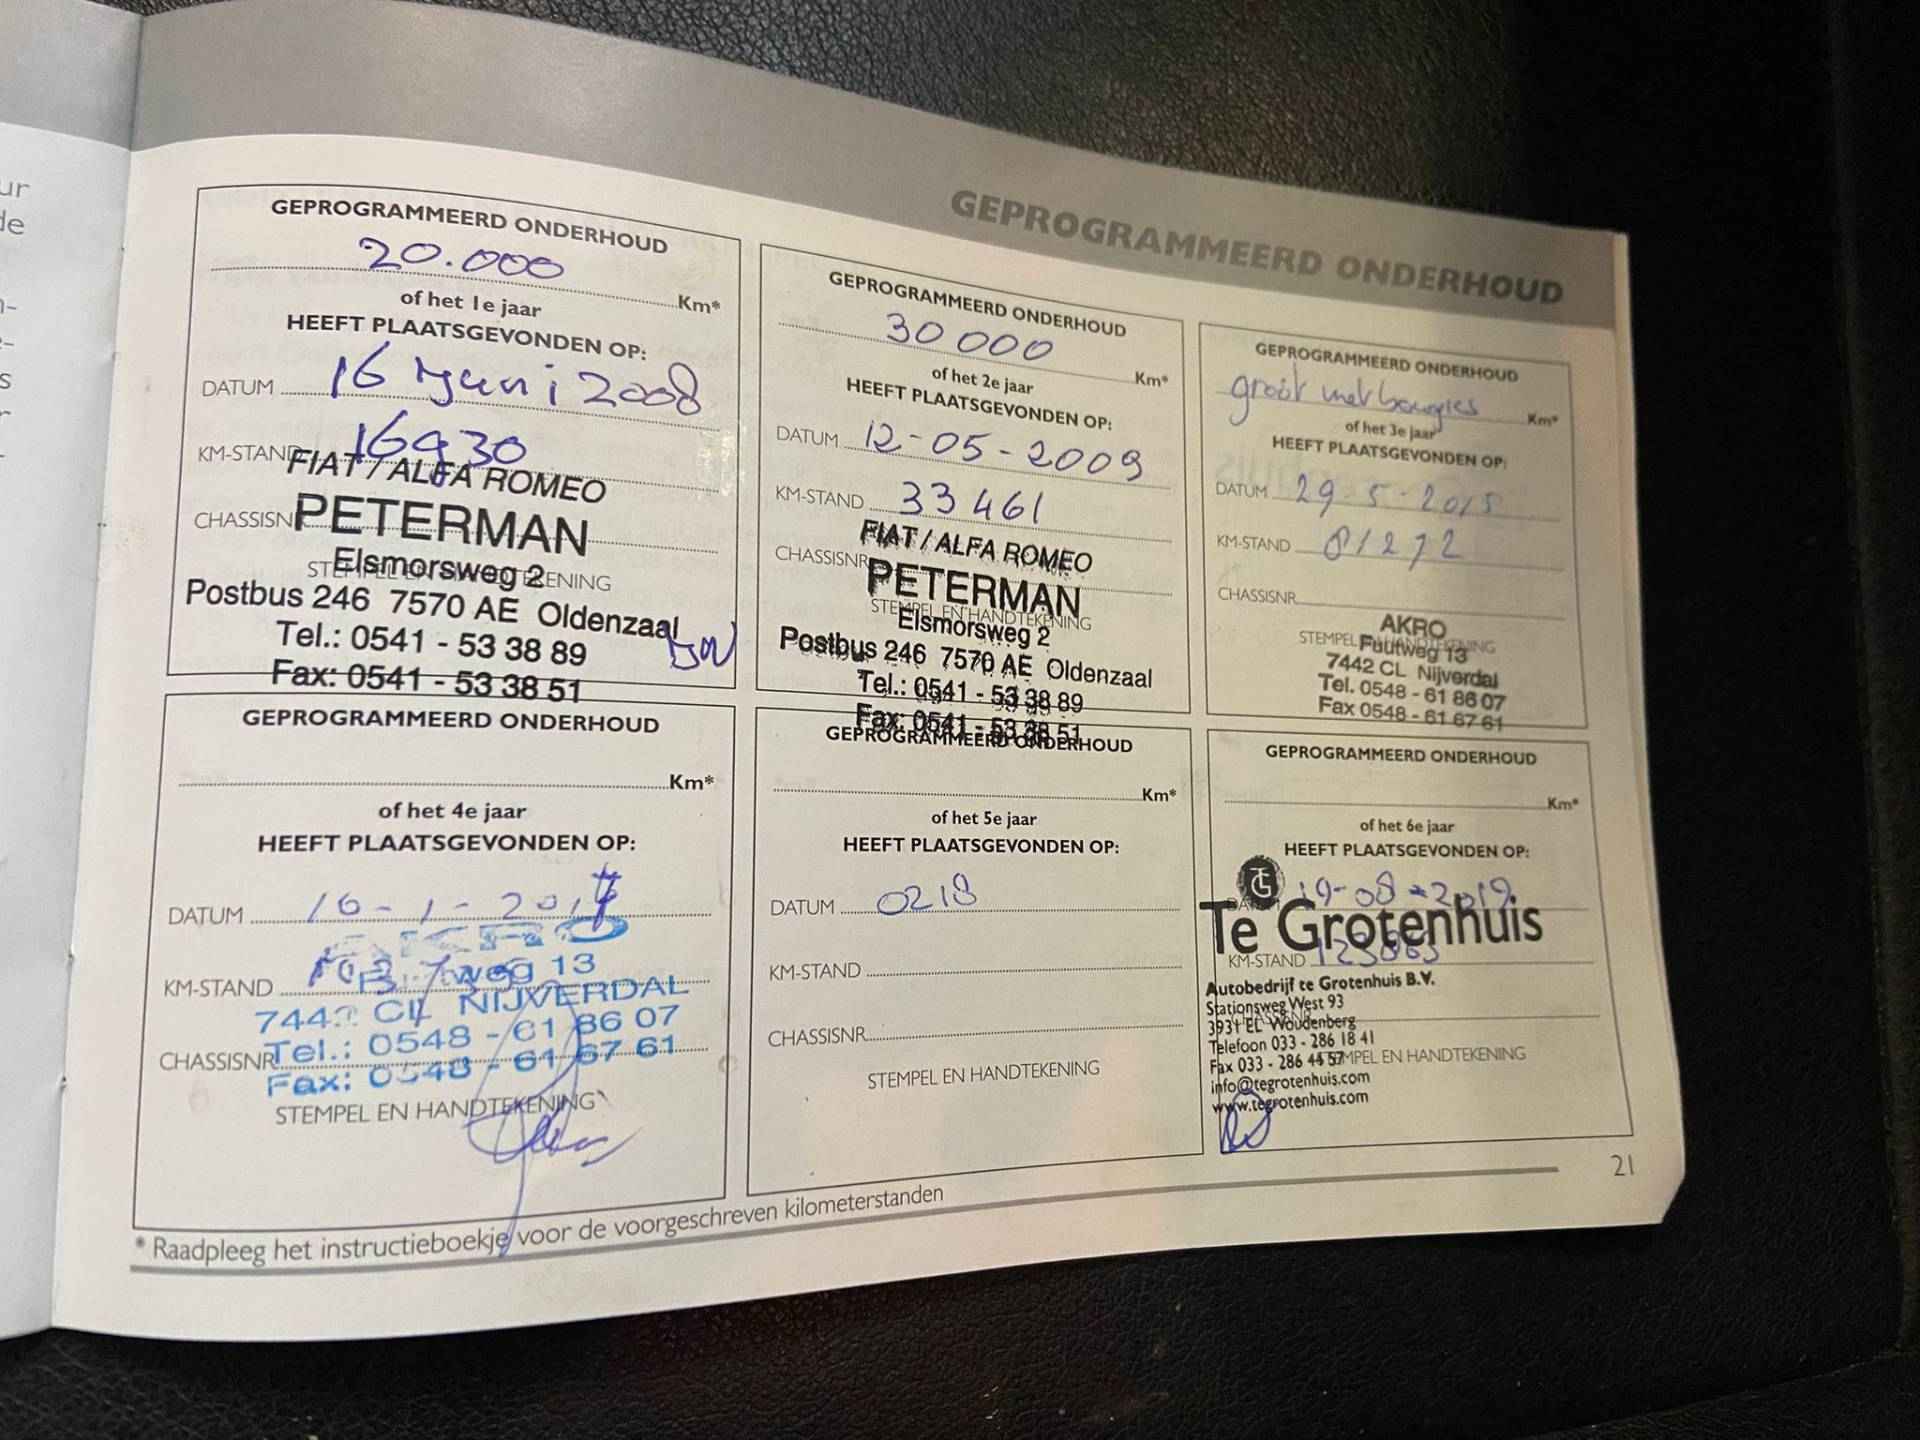 GEPROGRAMMEERD ONDERHOUD
GEPROGRAMMEERD ONDERHOUD
20.000 Km*
of het 1e jaar
HEEFT PLAATSGEVONDEN OP:
DATUM 16 juni 2008
KM-STAND 16930
FIAT / ALFA ROMEO
CHASSISNR
PETERMAN
Elsmorsweg 2
STEMPEL EN HANDTEKENING
Postbus 246 7570 AE Oldenzaal
Tel.: 0541 - 53 38 89
Fax: 0541 - 53 38 51
GEPROGRAMMEERD ONDERHOUD
30000 Km*
of het 2e jaar
HEEFT PLAATSGEVONDEN OP:
DATUM 12-05-2009
KM-STAND 33461
FIAT / ALFA ROMEO
CHASSISNR
PETERMAN
STEMPEL EN HANDTEKENING
Elsmorsweg 2
Postbus 246 7570 AE Oldenzaal
Tel.: 0541 - 53 38 89
Fax: 0541 - 53 38 51
GEPROGRAMMEERD ONDERHOUD
groot met bougies Km*
of het 3e jaar
HEEFT PLAATSGEVONDEN OP:
DATUM 29-5-2015
KM-STAND 81272
CHASSISNR
AKRO
STEMPEL EN HANDTEKENING
13
7442 CL Nijverdal
Tel. 0548 - 61 86 07
Fax 0548 - 61 67 61
GEPROGRAMMEERD ONDERHOUD
Km*
of het 4e jaar
HEEFT PLAATSGEVONDEN OP:
DATUM 16-1-
KM-STAND
13
7442 CL NIJVERDAL
CHASSISNR
Tel.: 0548 - 61 86 07
Fax: 0548 - 61 67 61
STEMPEL EN HANDTEKENING
GEPROGRAMMEERD ONDERHOUD
Km*
of het 5e jaar
HEEFT PLAATSGEVONDEN OP:
DATUM 0218
KM-STAND
CHASSISNR
STEMPEL EN HANDTEKENING
GEPROGRAMMEERD ONDERHOUD
Km*
of het 6e jaar
HEEFT PLAATSGEVONDEN OP:
19-08-2019
Te Grotenhuis
KM-STAND
Autobedrijf te Grotenhuis B.V.
Stationsweg West 93
3931 EL Woudenberg
Telefoon 033 - 286 18 41
Fax 033 - 286 44 57
STEMPEL EN HANDTEKENING
info@tegrotenhuis.com
www.tegrotenhuis.com
* Raadpleeg het instructieboekje voor de voorgeschreven kilometerstanden
21